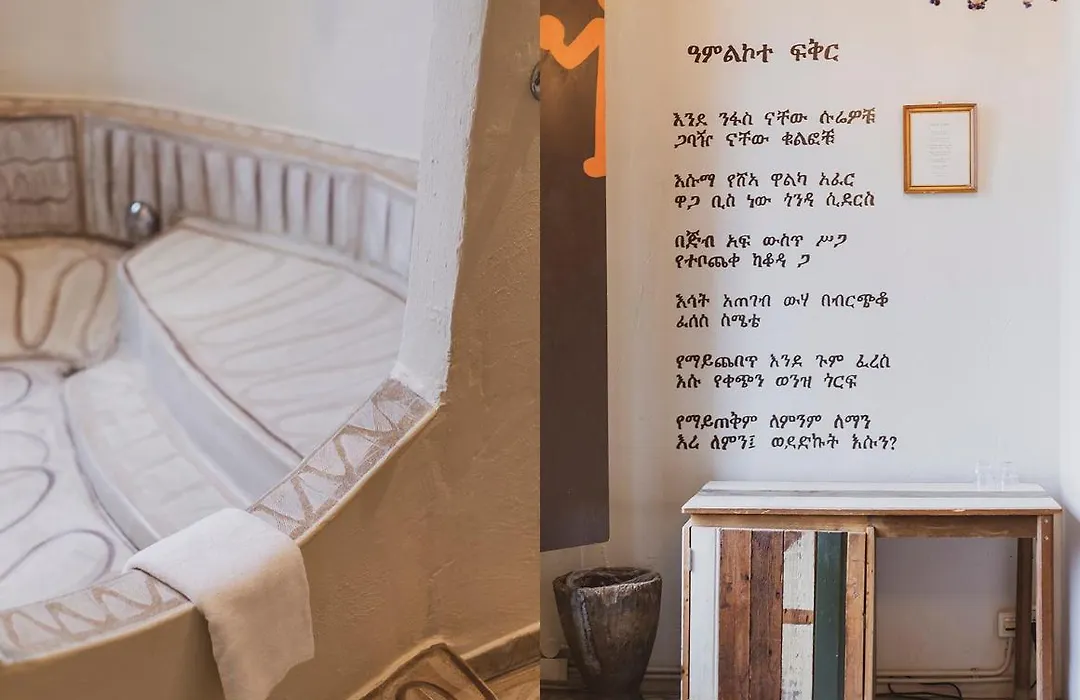 ዓምልኮተ ፍቅር
እንደ ንፋስ ናቸው ሱሬዎቹ
ጋባዥ ናቸው ቁልፎቹ
እሱማ የሸአ ዋልካ አፈር
ዋጋ ቢስ ነው ጎንዳ ሲደርስ
በጅብ አፍ ውስጥ ሥጋ
የተቦጨቀ ከቆዳ ጋ
እሳት አጠገብ ውሃ በብርጭቆ
ፈሰስ ስሜቴ
የማይጨበጥ እንደ ጉም ፈረስ
እሱ የቀጭን ወንዝ ጎርፍ
የማይጠቅም ለምንም ለማን
እረ ለምን፤ ወደድኩት እሱን?